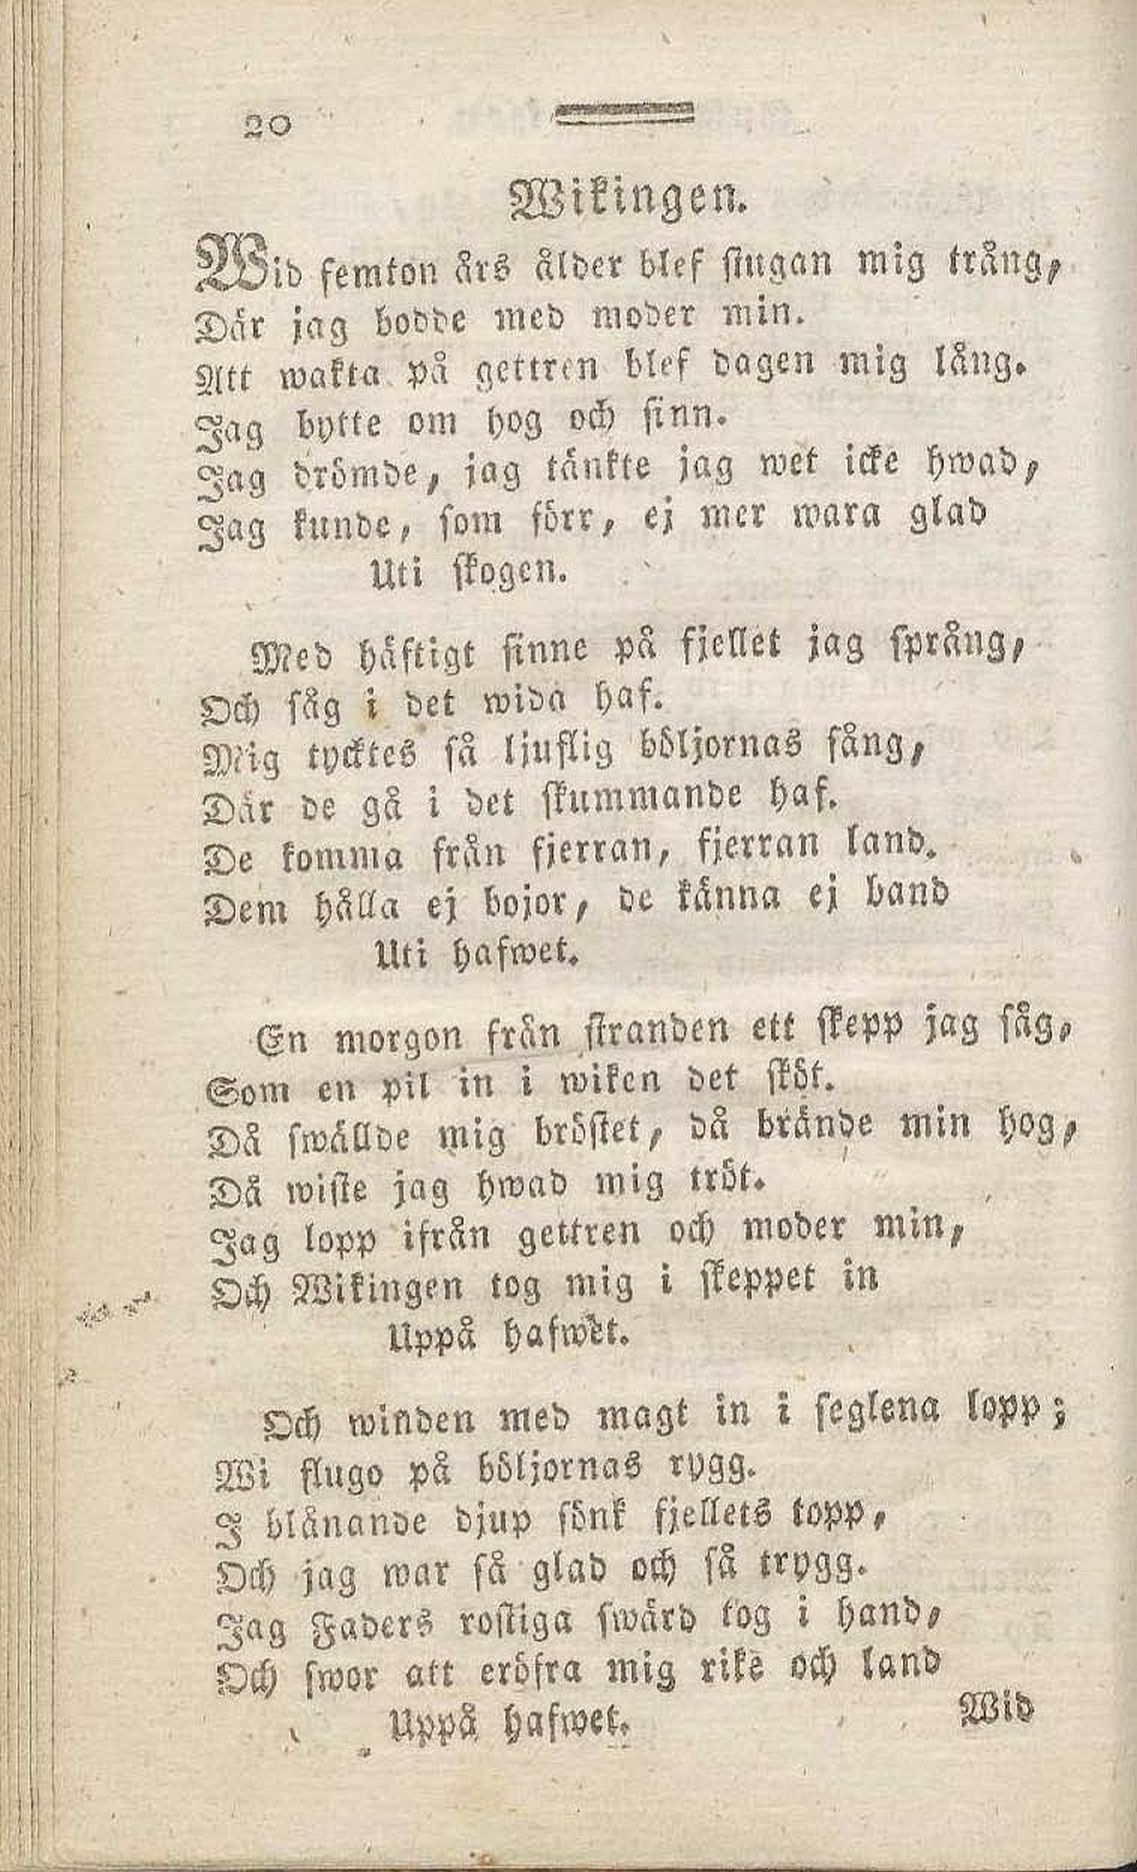 20
Wikingen.
Wid femton års ålder blef stugan mig trång,
Där jag bodde med moder min.
Att wakta på gettren blef dagen mig lång.
Jag bytte om hog och sinn.
Jag drömde, jag tänkte jag wet icke hwad,
Jag kunde, som förr, ej mer wara glad
Uti skogen.
Med häftigt sinne på fjellet jag språng,
Och såg i det wida haf.
Mig tycktes så ljuflig böljornas sång,
Där de gå i det skummande haf.
De komma från fjerran, fjerran land.
Dem hålla ej bojor, de känna ej band
Uti hafwet.
En morgon från stranden ett skepp jag såg,
Som en pil in i wiken det sköt.
Då swällde mig bröstet, då brände min hog,
Då wiste jag hwad mig tröt.
Jag lopp ifrån gettren och moder min,
Och Wikingen tog mig i skeppet in
Uppå hafwet.
Och winden med magt in i seglena lopp;
Wi flugo på böljornas rygg.
I blånande djup sönk fjellets topp,
Och jag war så glad och så trygg.
Jag Faders rostiga swärd tog i hand,
Och swor att eröfra mig rike och land
Uppå hafwet.
Wid